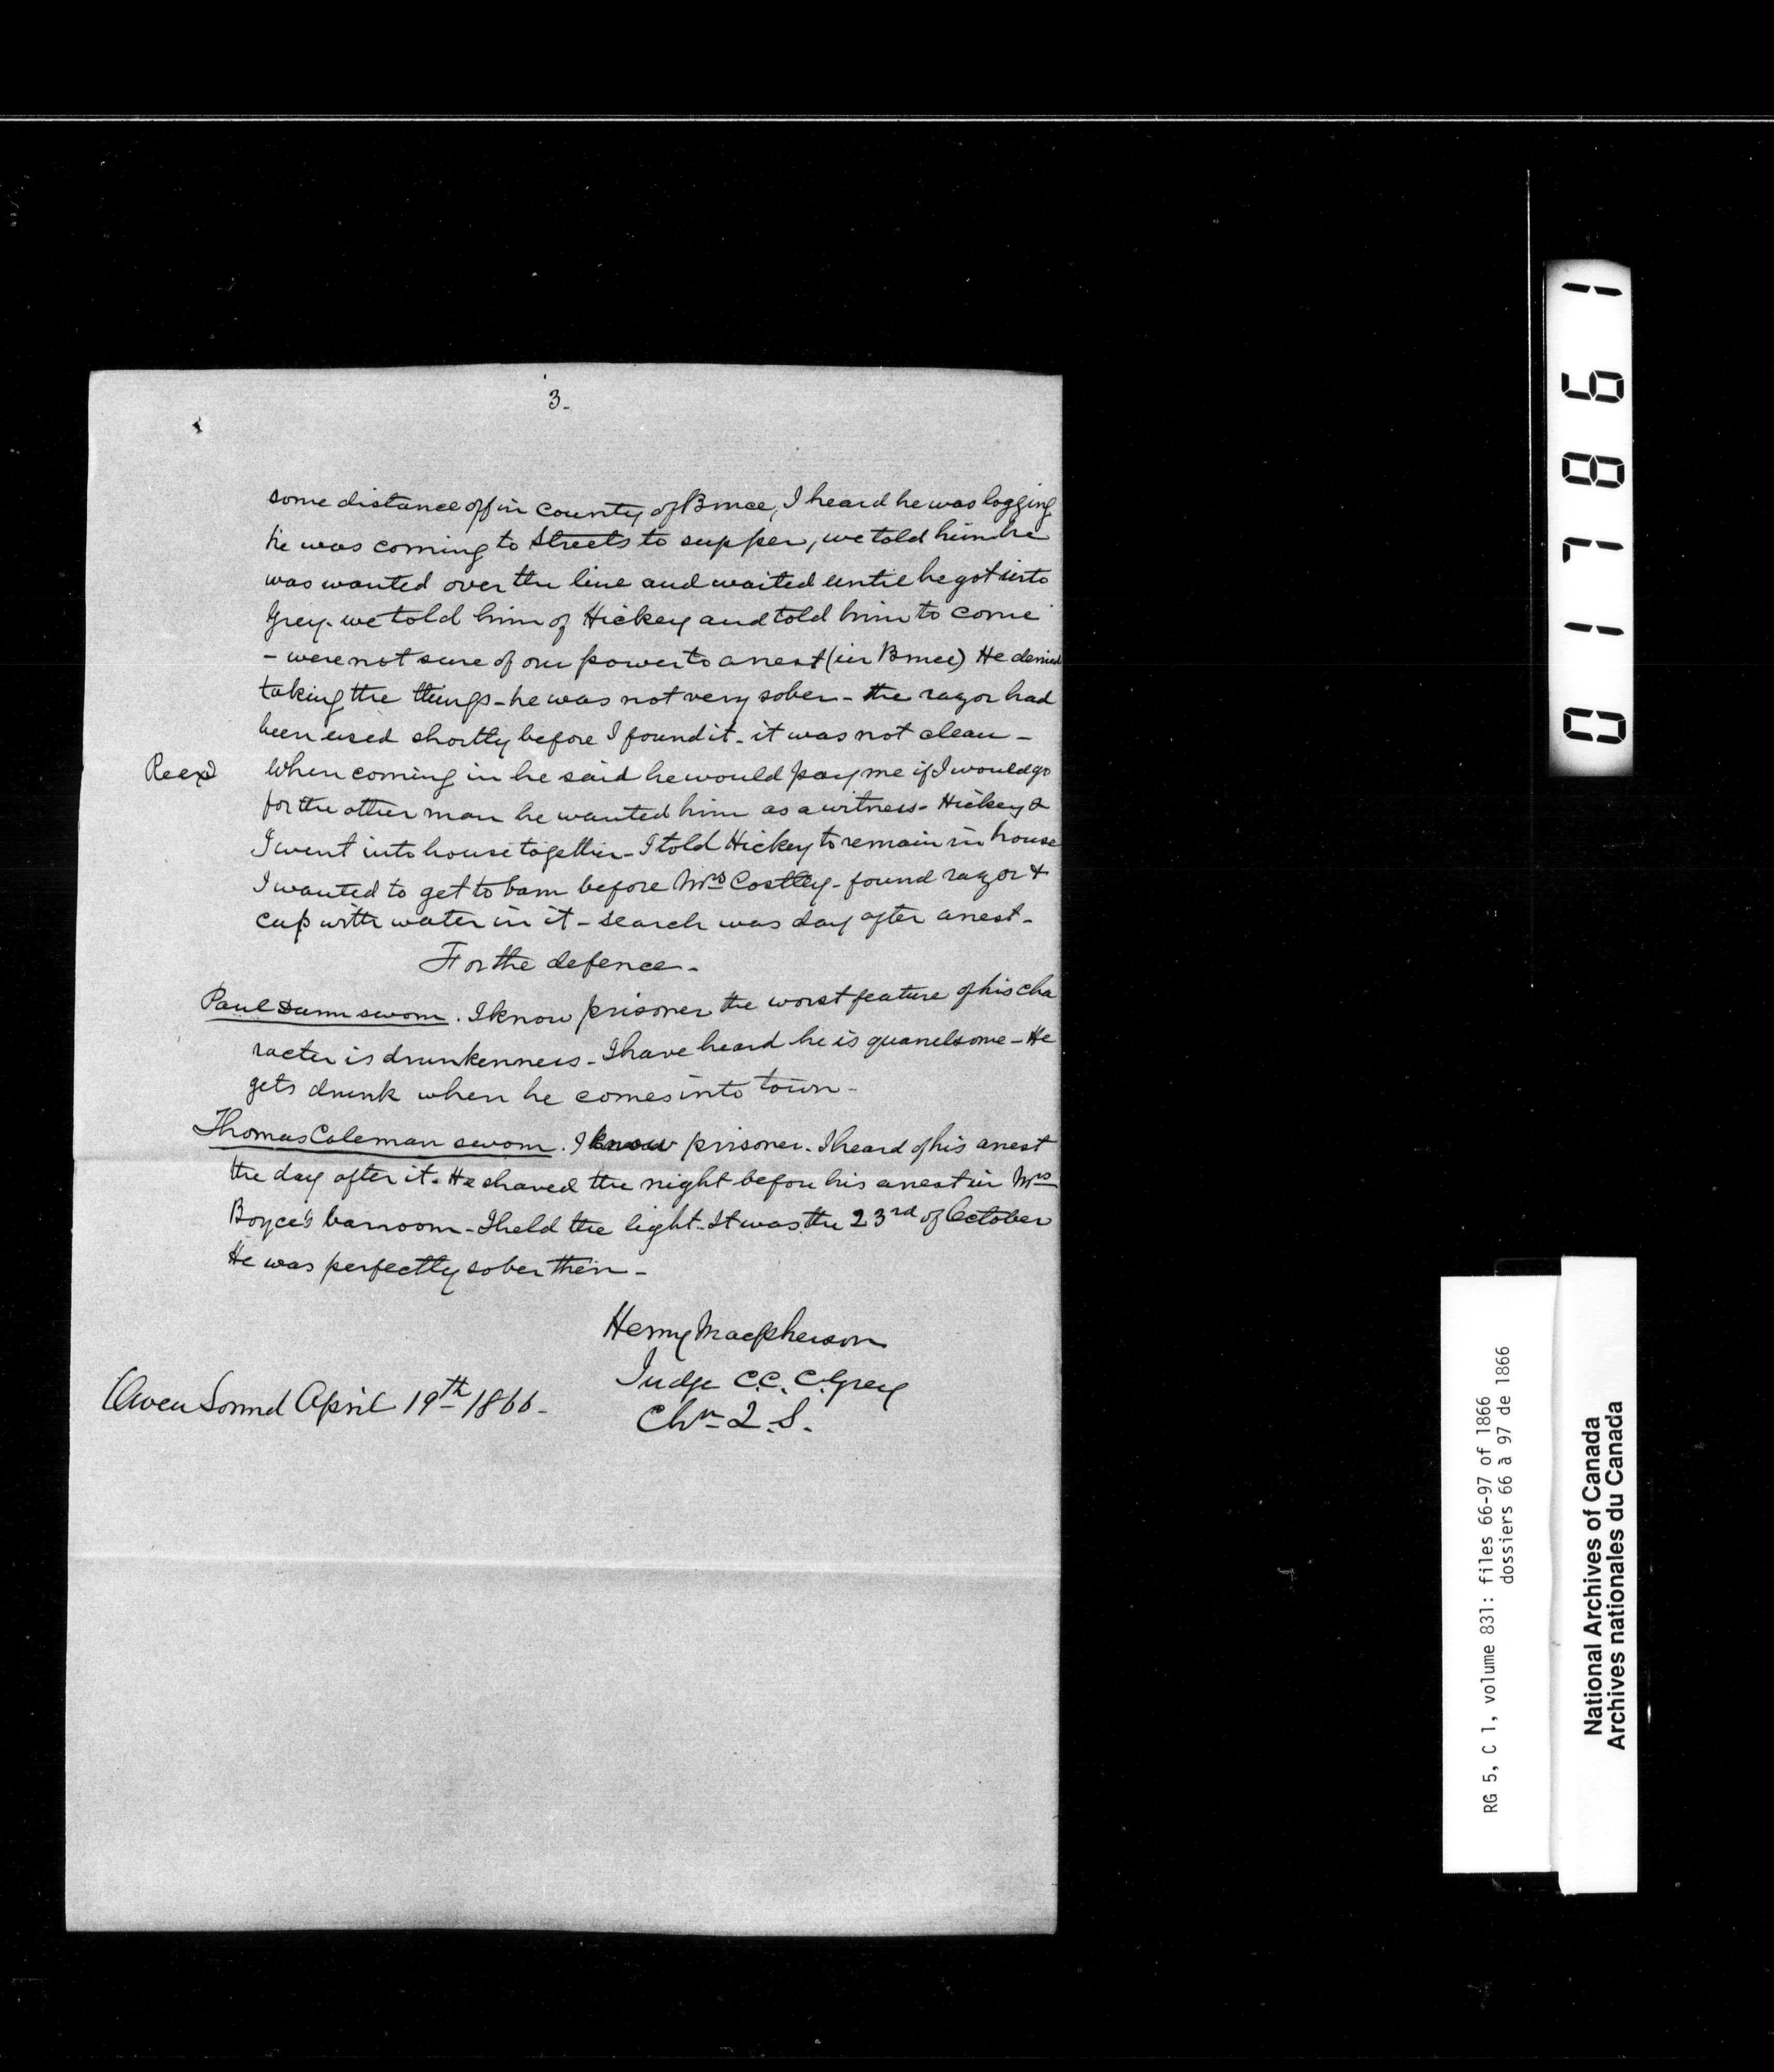 3.
some distance off in County of Bruce, I heard he was logging
he was coming to Streets to supper, we told him he
was wanted over the line and waited until he got into
Grey. we told him of Hickey and told him to come
- were not sure of our power to arrest (in Bruce) He denied
taking the things - he was not very sober - the razor had
been used shortly before I found it - it was not clean -
Reexd When coming in he said he would pay me if I would go
for the other man he wanted him as a witness - Hickey &
I went into house together - I told Hickey to remain in house
I wanted to get to barn before Mrs Costley - found razor &
cup with water in it - search was day after arrest -
For the defence -
Paul Dunn sworn. I know prisoner the worst feature of his cha
racter is drunkenness - I have heard he is quarrelsome - He
gets drunk when he comes into town -
Thomas Coleman sworn. I know prisoner. I heard of his arrest
the day after it. He shaved the night before his arrest in Mrs
Boyce's barroom - I held the light. It was the 23rd of October
He was perfectly sober then -
Henry Macpherson
Judge C.C. C. Grey
Chn Q.S.
Owen Sound April 19th 1866 -
017861
RG 5, C 1, volume 831: files 66-97 of 1866
dossiers 66 à 97 de 1866
National Archives of Canada
Archives nationales du Canada